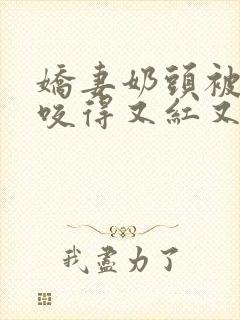 嬌妻奶頭被
咬得又紅又
我盡力了